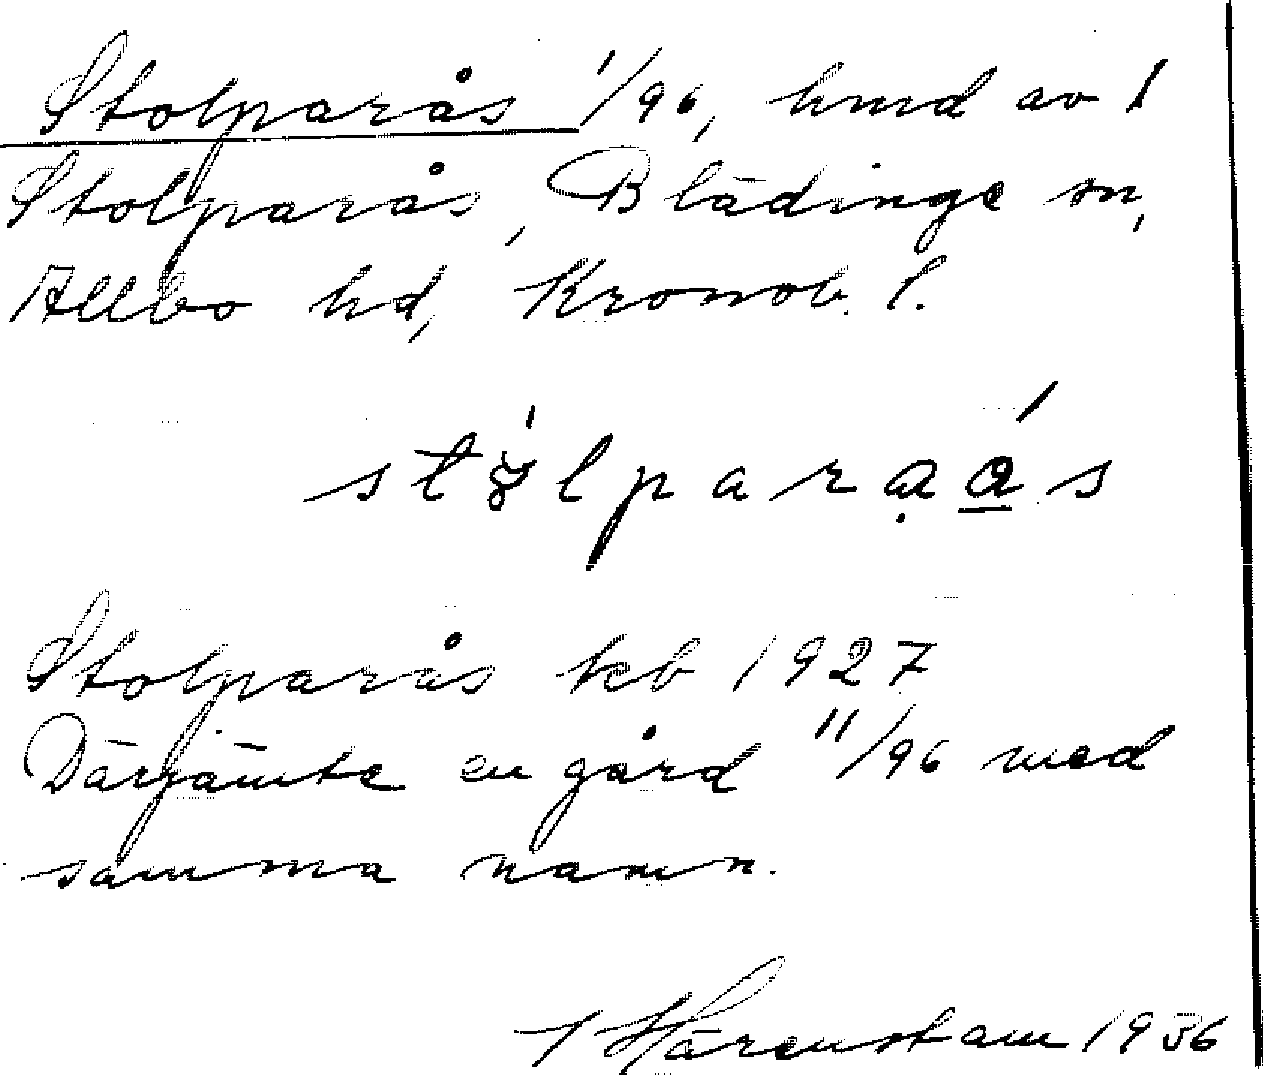 Stolparås 1/96, hmd av 1
Stolparås, Blädinge sn,
Allbo hd, Kronob. l.
Stolparås kb 1927
Därjämte en gård 11/96 med
samma namn.
J Härenstam 1936